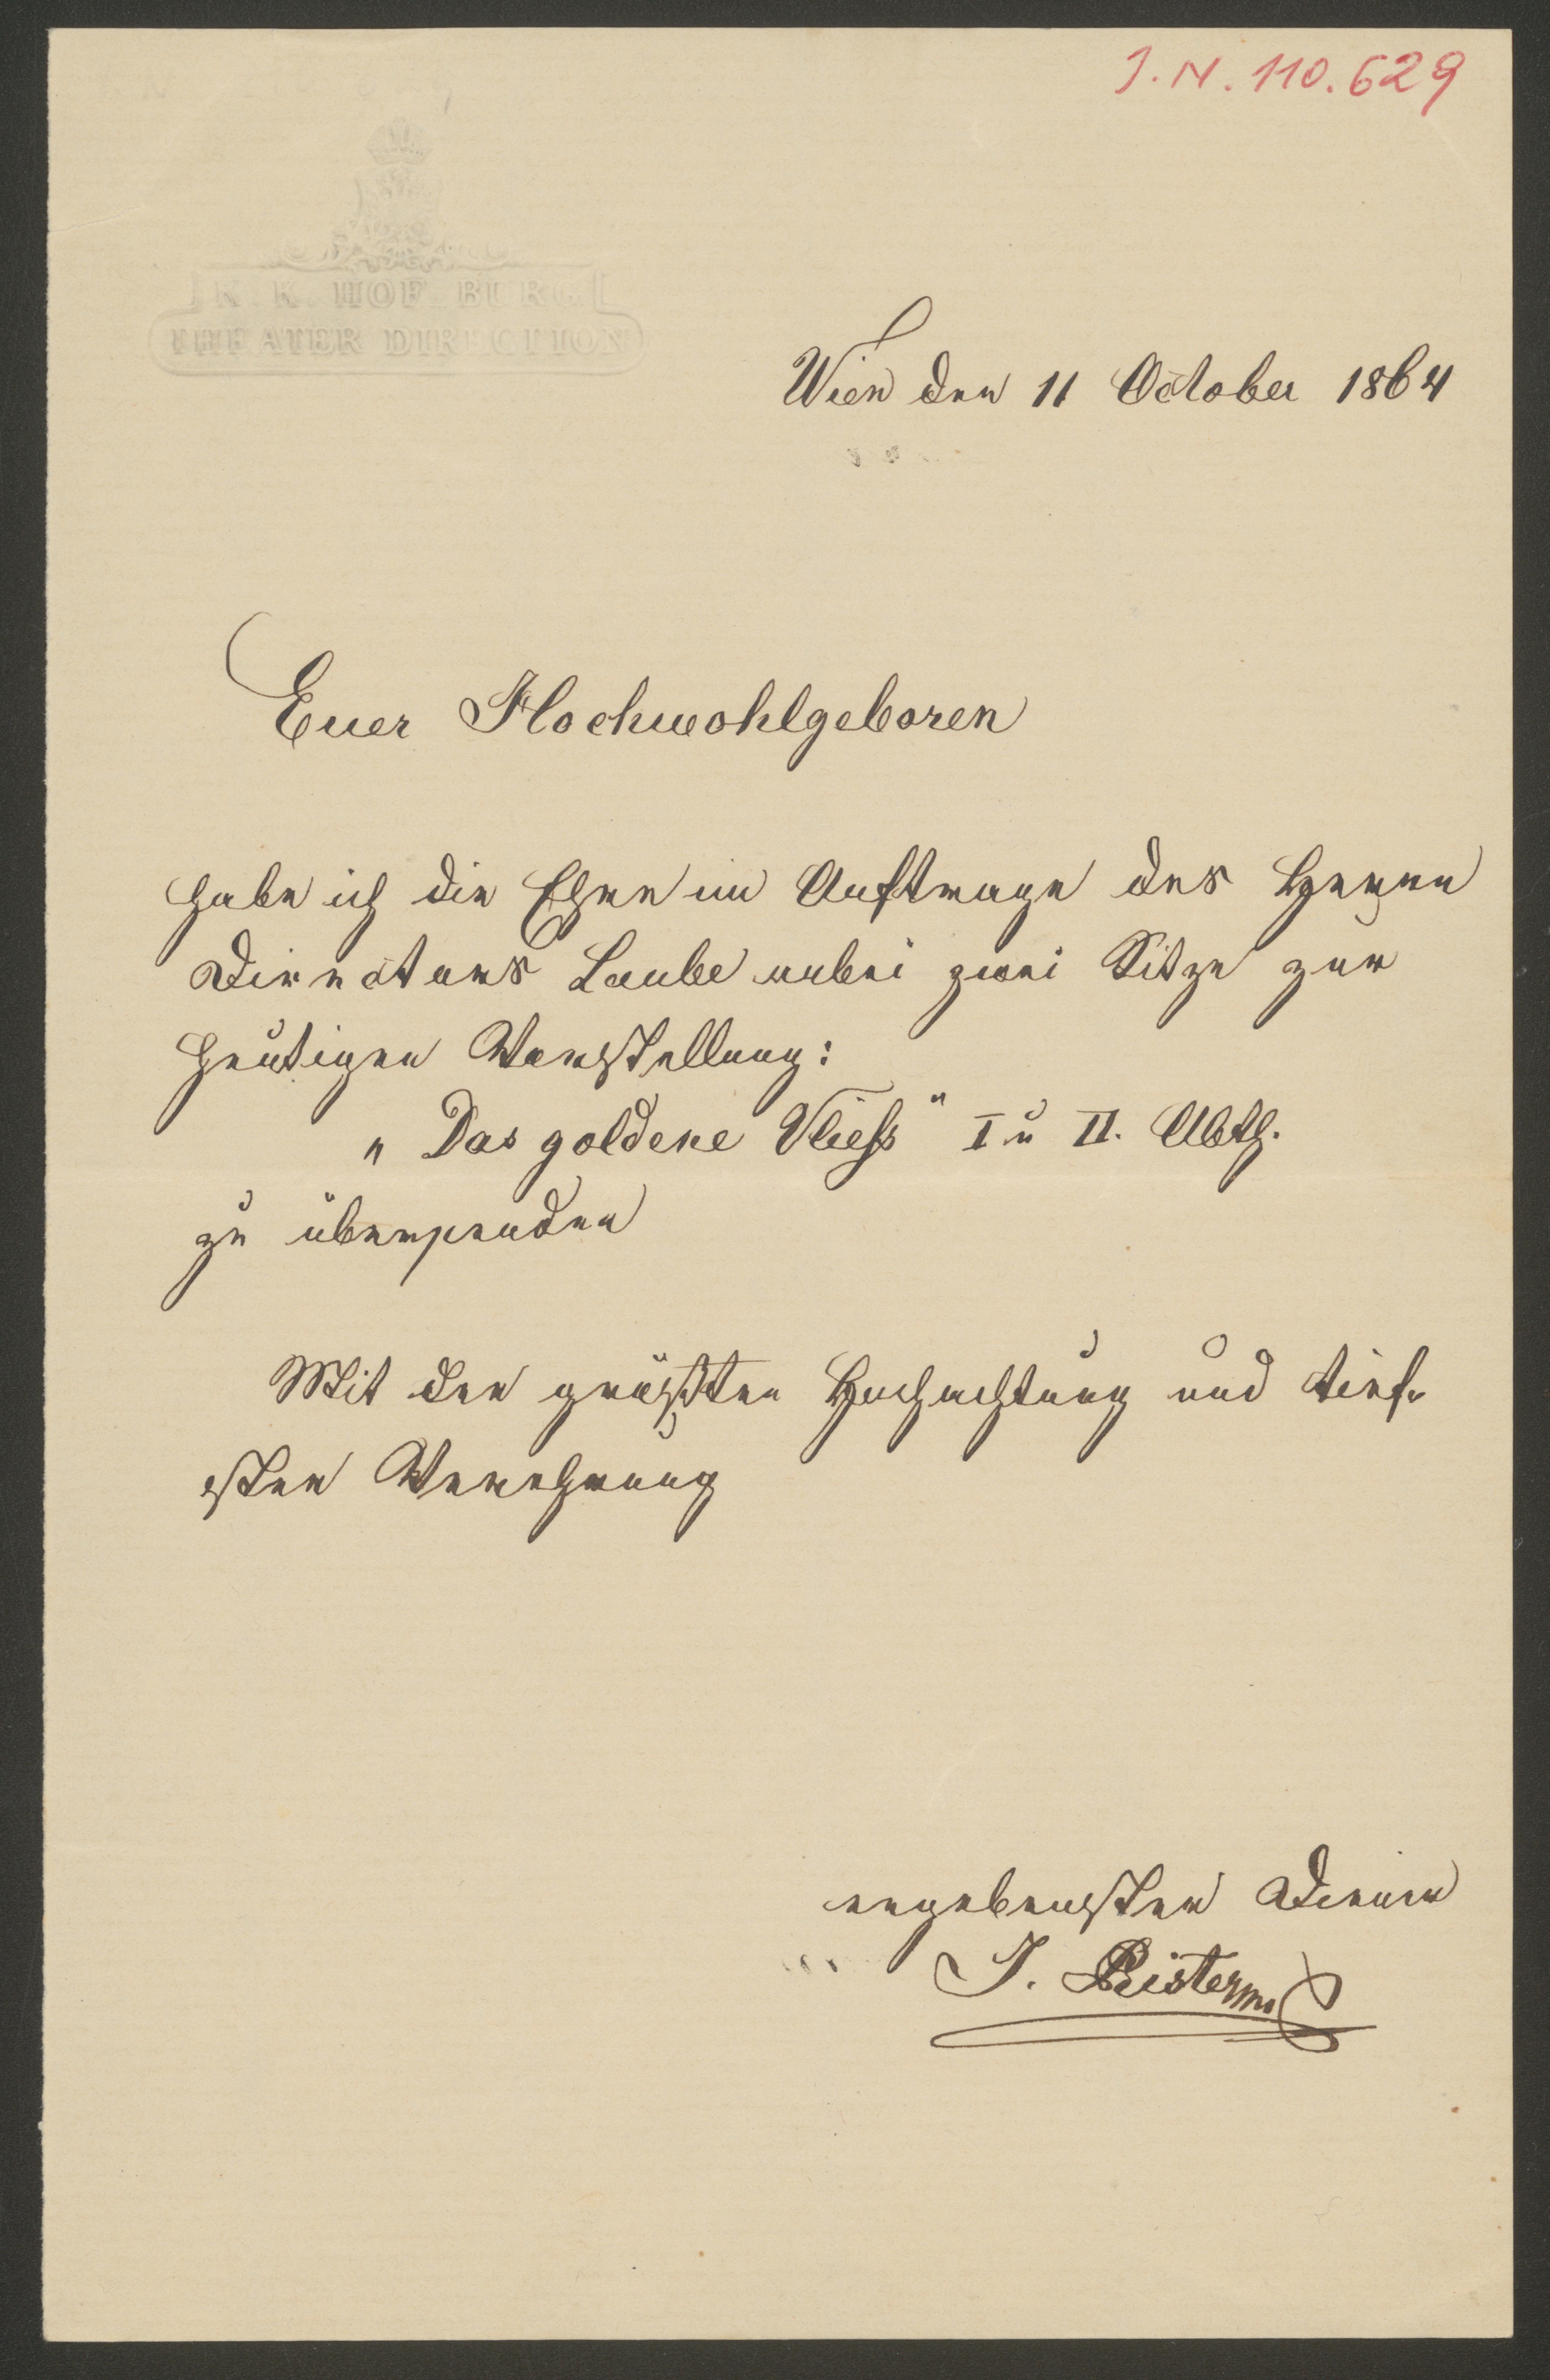 J. N. 110.629
K. K. HOF-BURG
THEATER DIRECTION
Wien den 11 October 1864
Euer Hochwohlgeboren
habe ich die Ehre im Auftrage des Herrn
Directors Laube anbei zwei Sitze zur
heutigen Vorstellung:
„Das goldene Vließ" I u II. Abth.
zu übersenden
Mit der größten Hochachtung und tief-
sten Verehrung
ergebenster Diener
J.